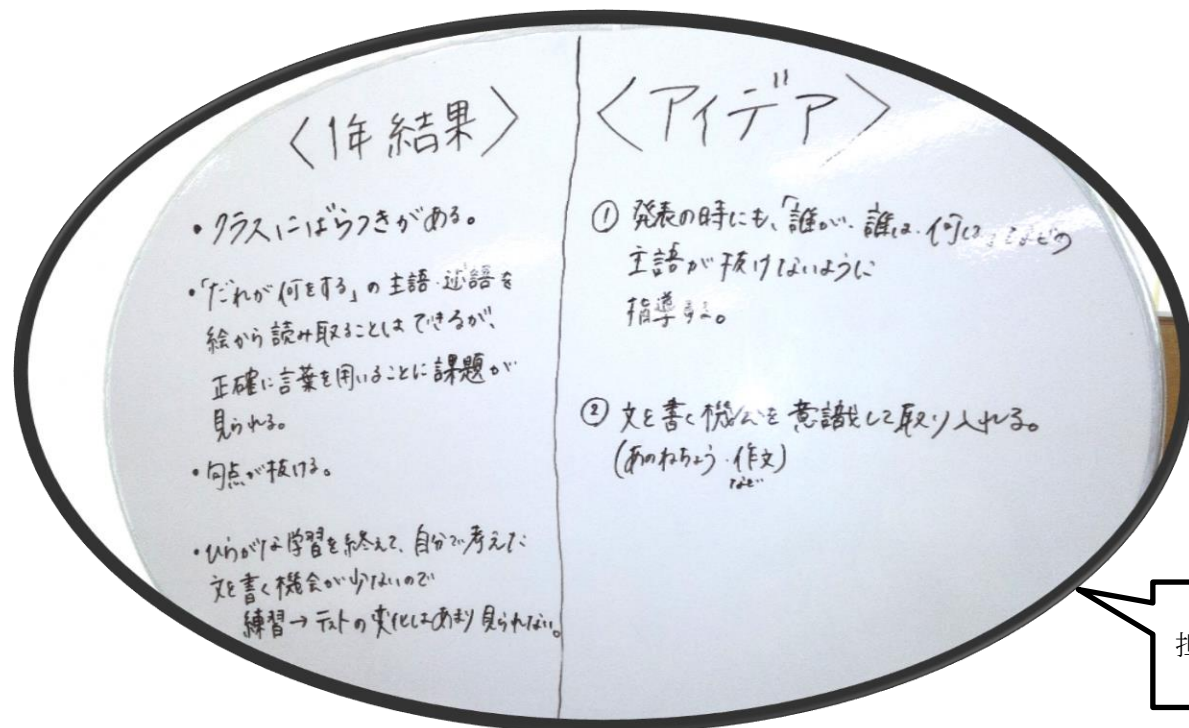 〈1年結果〉
・クラスにばらつきがある。
・「だれが何をする」の主語・述語を
絵から読み取ることはできるが、
正確に言葉を用いることに課題が
見られる。
・句点が抜ける。
・ひらがな学習を終えて、自分で考えた
文を書く機会が少ないので
練習→テストの変化はあまり見られない。
〈アイデア〉
① 発表の時にも、「誰が・誰は・何は」などの
主語が抜けないように
指導する。
②文を書く機会を意識して取り入れる。
(あのねちょう・作文)
など
担